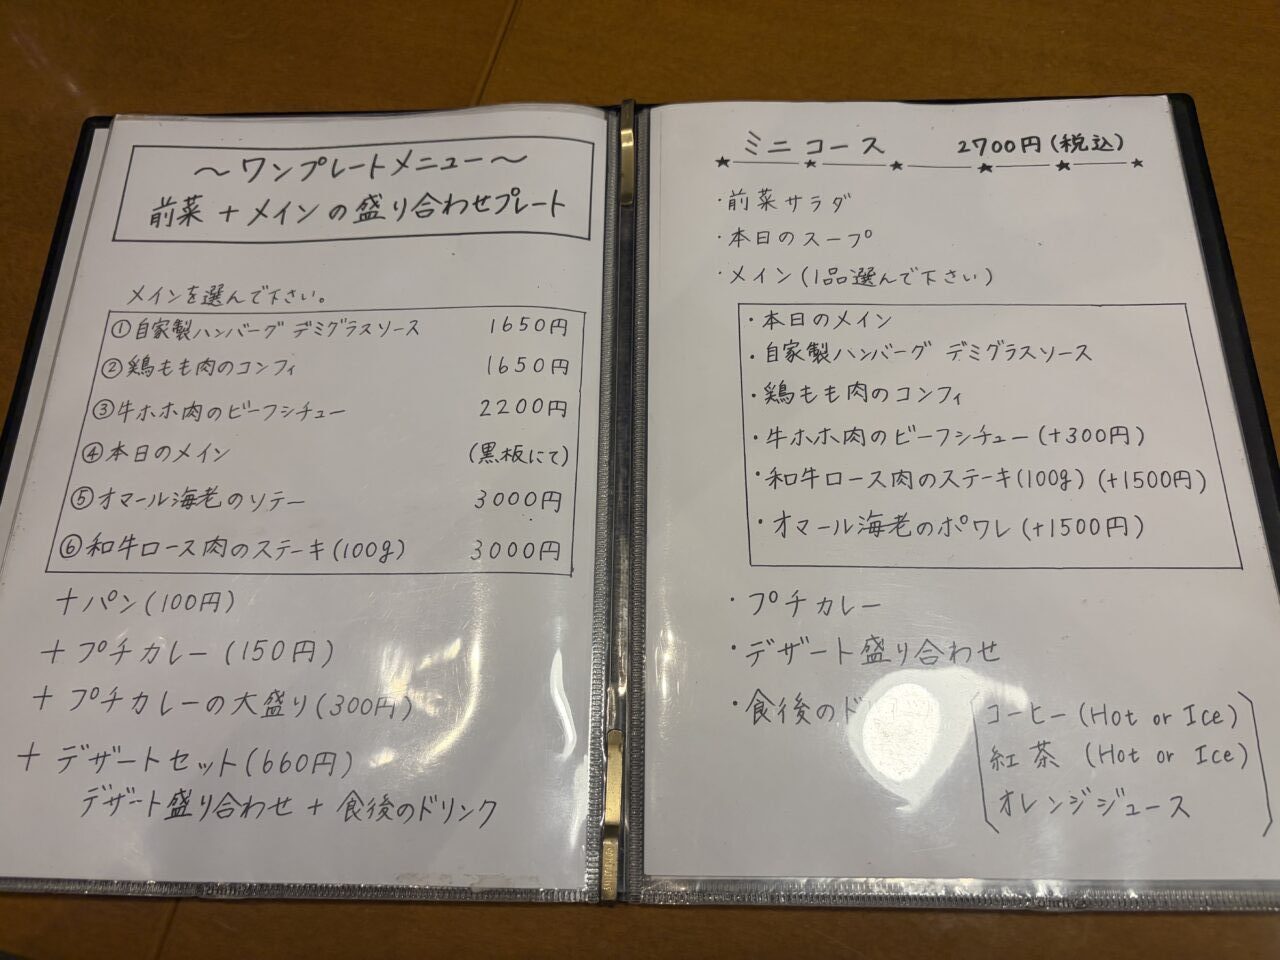 ～ワンプレートメニュー～
前菜＋メインの盛り合わせプレート
メインを選んで下さい。
①自家製ハンバーグ デミグラスソース 1650円
②鶏もも肉のコンフィ 1650円
③牛ホホ肉のビーフシチュー 2200円
④本日のメイン (黒板にて)
⑤オマール海老のソテー 3000円
⑥和牛ロース肉のステーキ(100g) 3000円
＋パン(100円)
＋プチカレー(150円)
＋プチカレーの大盛り(300円)
＋デザートセット(660円)
デザート盛り合わせ＋食後のドリンク
ミニコース 2700円(税込)
・前菜サラダ
・本日のスープ
・メイン(1品選んで下さい)
・本日のメイン
・自家製ハンバーグ デミグラスソース
・鶏もも肉のコンフィ
・牛ホホ肉のビーフシチュー(+300円)
・和牛ロース肉のステーキ(100g)(+1500円)
・オマール海老のポワレ(+1500円)
・プチカレー
・デザート盛り合わせ
・食後の
コーヒー(Hot or Ice)
紅茶 (Hot or Ice)
オレンジジュース